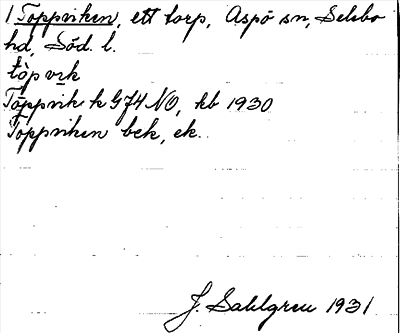 1 Toppviken, ett torp, Aspö sn, Selebo
hd, Söd. l.
tòpvɩk
Toppvik k G74 NO, kb 1930
Toppviken bek, ek.
J. Sahlgren 1931